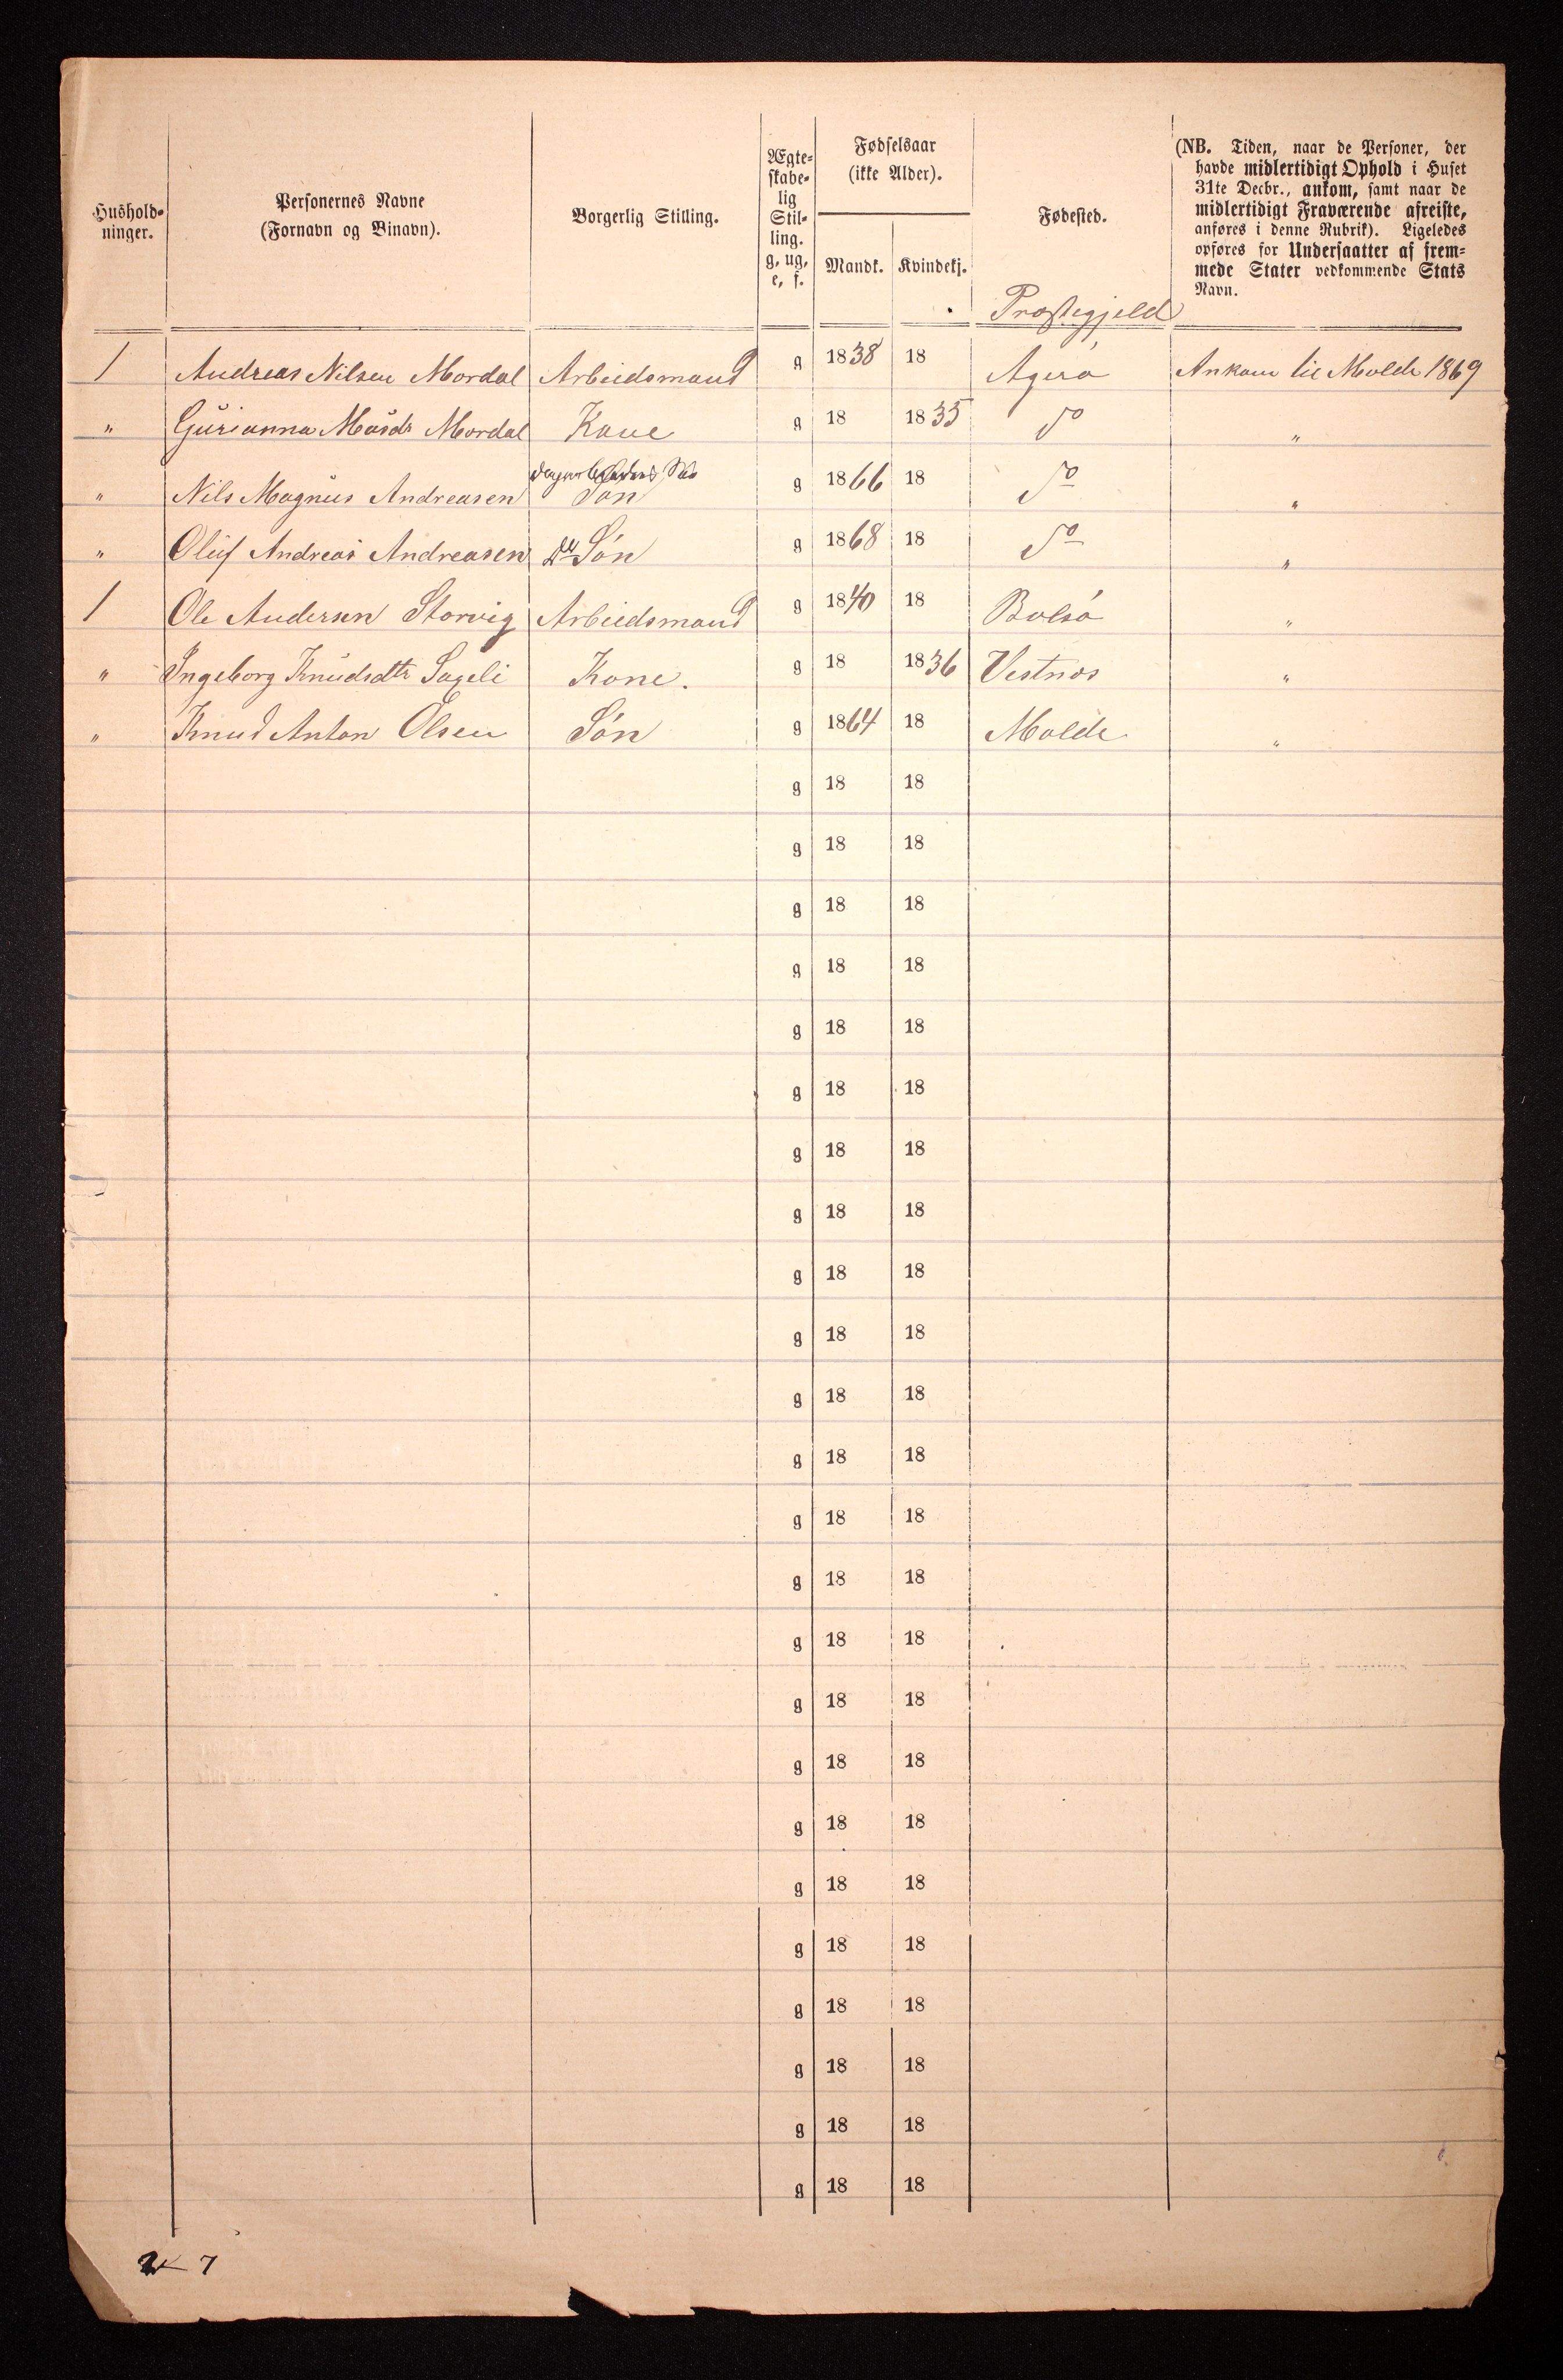 Hushold-
ninger.
Personernes Navne
(Fornavn og Binavn).
Borgerlig Stilling.
Ægte-
skabe-
lig
Stil-
ling.
g, ug,
e, f.
Fødselsaar
(ikke Alder).
Mandk. Kvindekj.
Fødested.
Præstegjeld
(NB. Tiden, naar de Personer, der
havde midlertidigt Ophold i Huset
31te Decbr., ankom, samt naar de
midlertidigt Fraværende afreiste,
anføres i denne Rubrik). Ligeledes
opføres for Undersaatter af frem-
mede Stater vedkommende Stats
Navn.
1 Andreas Nilsen Mordal Arbeidsmand g 1838 18 Agerø Ankom til Molde 1869
" Gurianna Mordal Kone g 18 1835 do "
" Nils Magnus Andreasen Søn g 1866 18 do "
" Oluf Andreas Andreasen Søn g 1868 18 do "
1 Ole Andersen Storvig Arbeidsmand g 1840 18 Bolsø "
" Ingeborg Knudsdtr Sageli Kone. g 18 1836 Vestnæs "
" Knud Anton Olsen Søn g 1864 18 Molde "
g 18 18
g 18 18
g 18 18
g 18 18
g 18 18
g 18 18
g 18 18
g 18 18
g 18 18
g 18 18
g 18 18
g 18 18
g 18 18
g 18 18
g 18 18
g 18 18
g 18 18
g 18 18
g 18 18
g 18 18
g 18 18
g 18 18
g 18 18
g 18 18
7